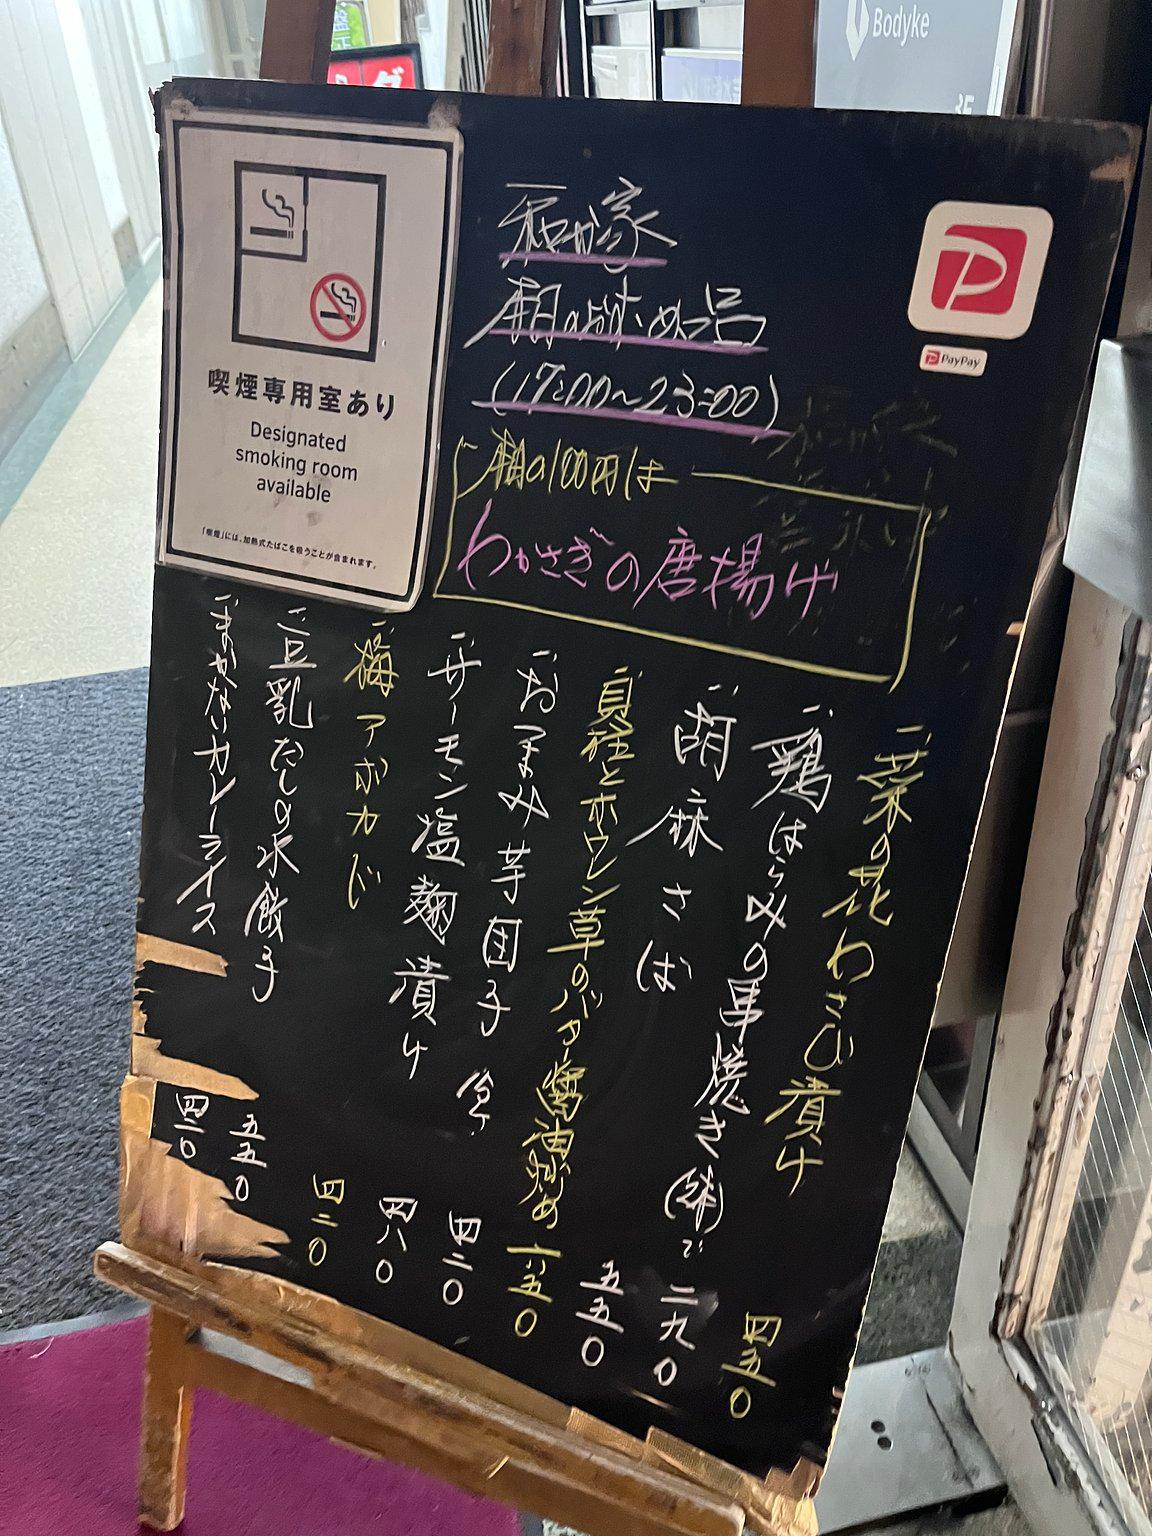 Bodyke
3F
喫煙専用室あり
Designated
smoking room
available
「喫煙」には、加熱式たばこを吸うことが含まれます。
PayPay
(17:00~23:00)
朝の100円は
わかさぎの唐揚げ
菜の花わさび漬け 四五〇
鶏はらみの串焼き 二九〇
胡麻さば 五五〇
貝柱とホウレン草のバター醤油炒め 六五〇
おつまみ芋団子 四二〇
サーモン塩麹漬け 四八〇
梅アボカド 四二〇
豆乳だしの水餃子 五五〇
まかないカレーライス 四二〇